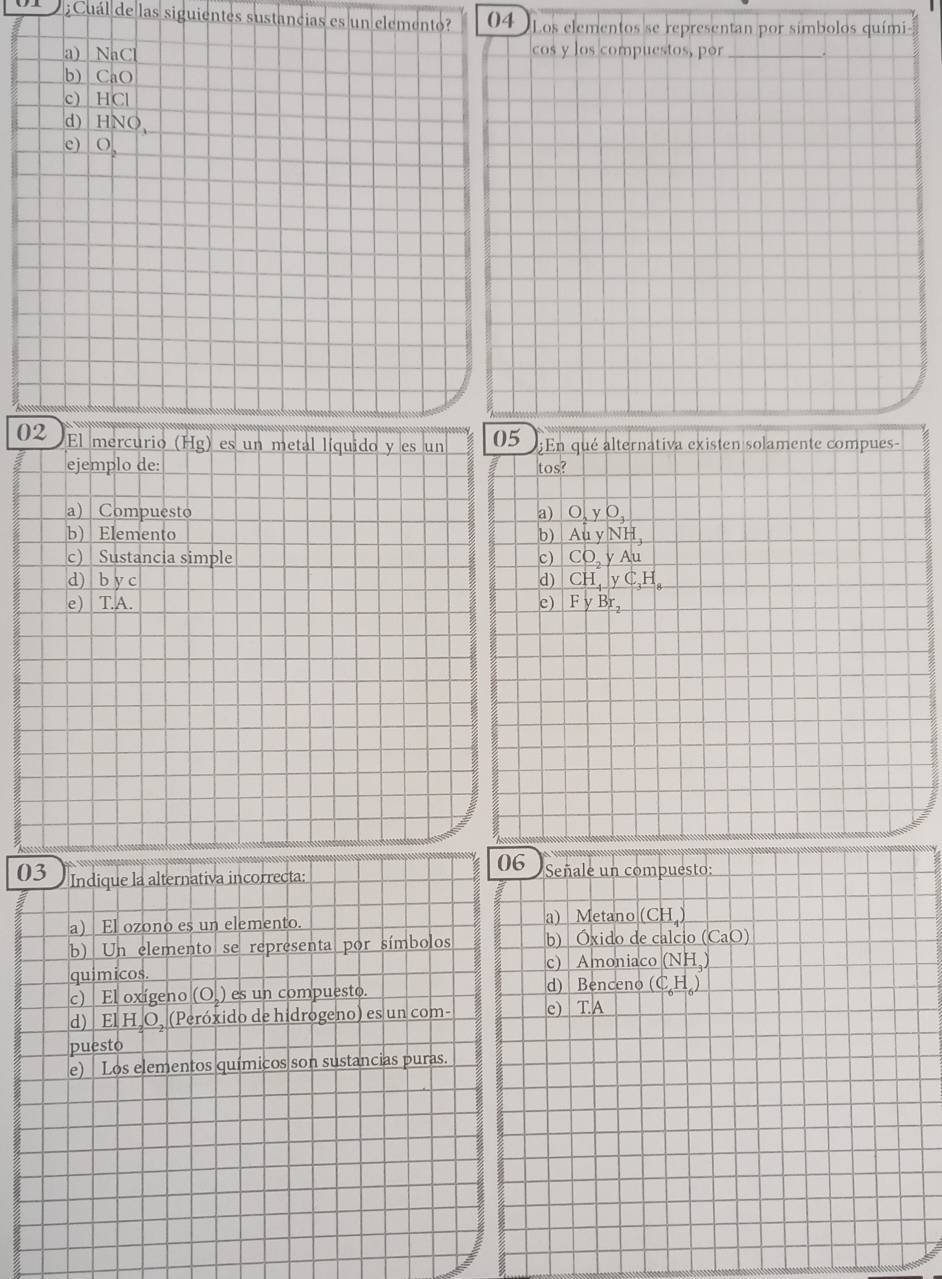 01 ¿Cuál de las siguientes sustancias es un elemento?
a) NaCl
b) CaO
c) HCl
d) HNO₃
e) O₂
02 El mercurio (Hg) es un metal líquido y es un
ejemplo de:
a) Compuesto
b) Elemento
c) Sustancia simple
d) b y c
e) T.A.
03 Indique la alternativa incorrecta:
a) El ozono es un elemento.
b) Un elemento se representa por símbolos
químicos.
c) El oxígeno (O₂) es un compuesto.
d) El H₂O₂ (Peróxido de hidrógeno) es un com-
puesto
e) Los elementos químicos son sustancias puras.
04 Los elementos se representan por símbolos quími-
cos y los compuestos, por __________.
05 ¿En qué alternativa existen solamente compues-
tos?
a) O₂ y O₃
b) Au y NH₃
c) CO₂ y Au
d) CH₄ y C₃H₈
e) F y Br₂
06 Señale un compuesto:
a) Metano (CH₄)
b) Óxido de calcio (CaO)
c) Amoniaco (NH₃)
d) Benceno (C₆H₆)
e) T.A